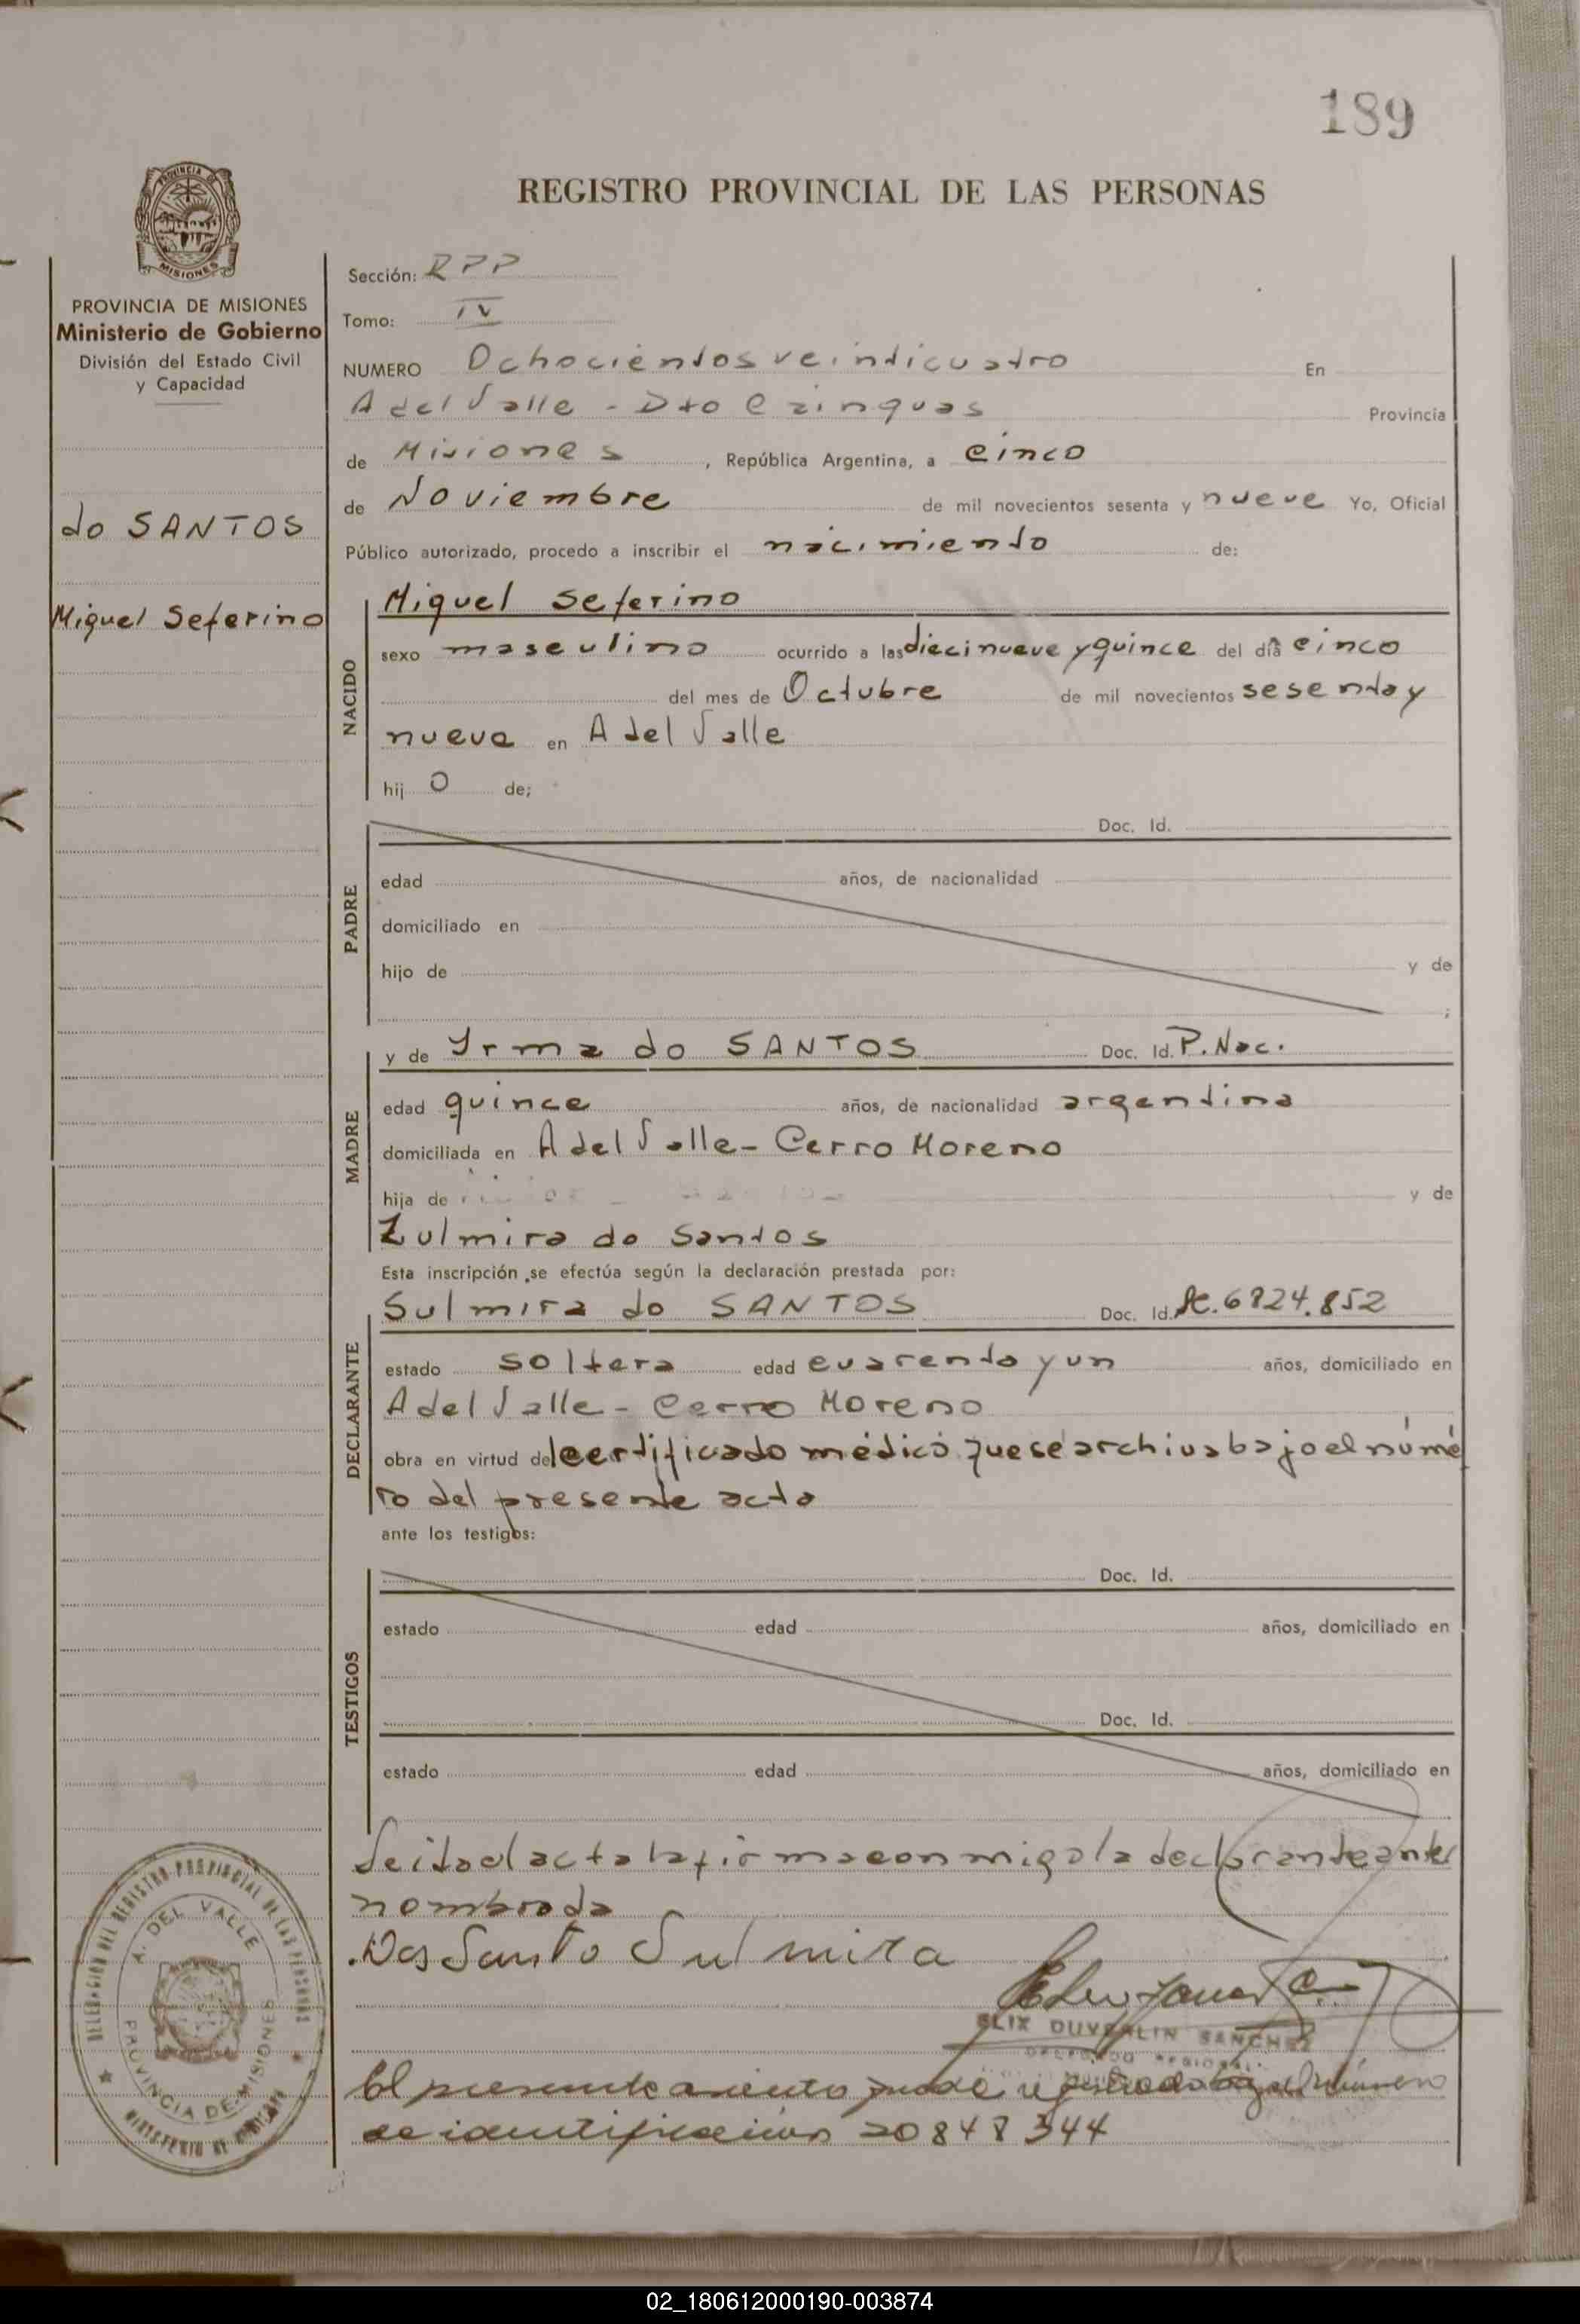 189
REGISTRO PROVINCIAL DE LAS PERSONAS
PROVINCIA DE MISIONES
Ministerio de Gobierno
División del Estado Civil
y Capacidad
do SANTOS
Miguel Seferino
Sección: RPP
Tomo: IV
NUMERO Ochocientos veinticuatro En
A del Valle - Dto Cainguas Provincia
de Misiones, República Argentina, a cinco
de Noviembre de mil novecientos sesenta y nueve Yo, Oficial
Público autorizado, procedo a inscribir el nacimiento de:
NACIDO
Miguel Seferino
sexo masculino ocurrido a las diecinueve y quince del día cinco
del mes de Octubre de mil novecientos sesenta y
nueve en A del Valle
hij o de;
PADRE
Doc. Id.
edad años, de nacionalidad
domiciliado en
hijo de y de
;
MADRE
y de Yrma do SANTOS Doc. Id. P. Nac.
edad quince años, de nacionalidad argentina
domiciliada en A del Valle - Cerro Moreno
hija de y de
Zulmira do Santos
Esta inscripción se efectúa según la declaración prestada por:
DECLARANTE
Sulmira do SANTOS Doc. Id. 6824.852
estado soltera edad cuarenta y un años, domiciliado en
A del Valle - Cerro Moreno
obra en virtud del certificado médico que se archiva bajo el núme
ro del presente acta
ante los testigos:
TESTIGOS
Doc. Id.
estado edad años, domiciliado en
Doc. Id.
estado edad años, domiciliado en
Leida el acta la firma conmigo la declarante ante
nombrada
Dos Santo Sulmira
ELIX DUVERLIN SANCHEZ
DELEGADO REGIONAL
El presente asiento quedó registrado bajo el número
de identificación 20848344
DELEGACION DEL REGISTRO PROVINCIAL DE LAS PERSONAS
A. DEL VALLE
PROVINCIA DE MISIONES
MINISTERIO DE GOBIERNO
02_180612000190-003874